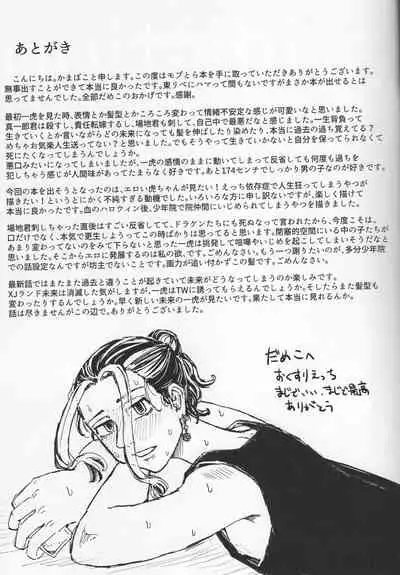 あとがき
こんにちは。かまぼこと申します。この度はモブとら本を手に取っていただきありがとうございます。
無事出すことができて本当に良かったです。東リべにハマって間もないですがまさか本が出せるとは
思ってませんでした。全部だめこのおかげです。感謝。
最初一虎を見た時、表情とか髪型とかころころ変わって情緒不安定な感じが可愛いなと思いました。
真一郎君は殺すし、責任転嫁するし、場地君も刺して、自己中で最悪だなと感じました。一生背負って
生きていくとか言いながらどの未来になっても髪を伸ばしたり染めたり、本当に過去の過ち覚えてる？
めちゃお気楽人生送ってない？と思いました。でもそうやって生きていかないと自分を保ってられなくて
死にたくなってしまうんでしょうか。
悪口みたいになってしまいましたが、一虎の感情のままに動いてしまって反省しても何度も過ちを
犯しちゃう感じが人間味があってたまらなく好きです。あと174センチでしっかり男の子なのが好きです。
今回の本を出そうとなったのは、エロい虎ちゃんが見たい！えっち依存症で人生狂ってしまうやつが
描きたい！というとにかく不純すぎる動機でした。いろいろな方に申し訳ないですが、楽しく描けて
本当に良かったです。血のハロウィン後、少年院で院仲間にいじめられてえっちにハマってしまうやつを描きました。
場地君刺しちゃった直後はすごい反省してて、ドラケンたちにも死ぬなって言われたから、今度こそは
口だけでなく、本気で更生しようってこの時ばかりは思ってると思います。閉塞的空間にいる中の子たちが
あまり変わってないのをみて下らないと思った一虎は挑発して喧嘩やいじめを起こしてしまいそうだなと
思いました。そこからエロに発展するのは私の欲、です。ごめんなさい。もう一つ謝りたいのが、多分少年院
での話設定なんですが坊主でないことです。画力が追い付かずこの髪です。ごめんなさい。
最新話ではまたまた過去と違うことが起きていて未来がどうなってしまうのか楽しみです。
XJランド未来は消滅した気がしますが、一虎はTWに誘ってもらえるんでしょうか。そしたらまた髪型も
変わったりするんでしょうか。早く新しい未来の一虎が見たいです。果たして本当に見れるんかな。
話は尽きませんがこの辺で。ありがとうございました。
だめこへ
おくすりえっち
まじでいい、まじで最高
ありがとう